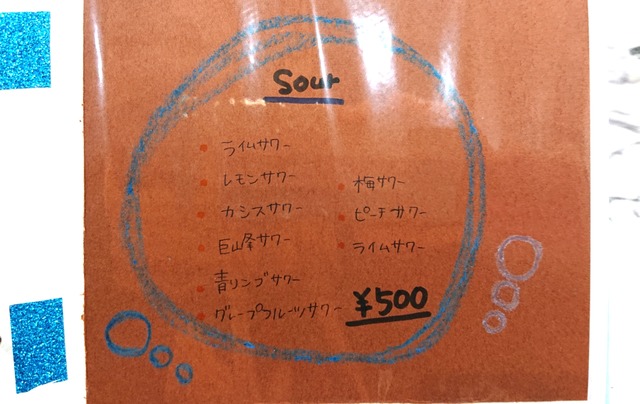 Sour
ライムサワー
レモンサワー
カシスサワー
巨峰サワー
青リンゴサワー
グレープフルーツサワー
梅サワー
ピーチサワー
ライムサワー
¥500